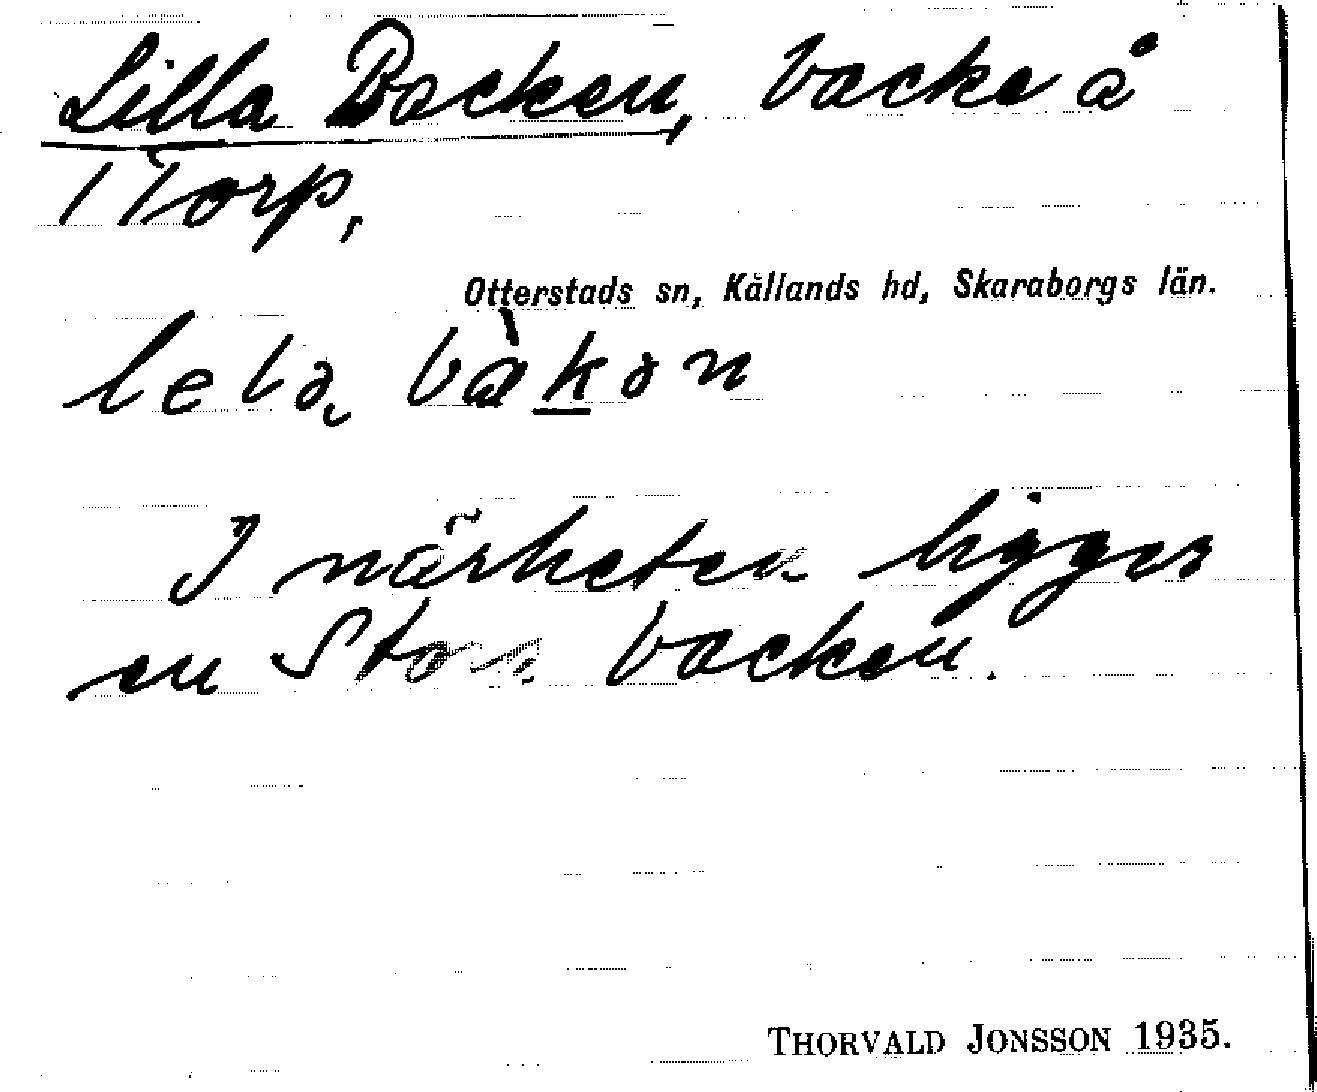 Lilla Backen, backe å
1 Torp,
Otterstads sn, Kållands hd, Skaraborgs län.
bàkon
I närheten ligger
en Stora backen.
THORVALD JONSSON 1935.